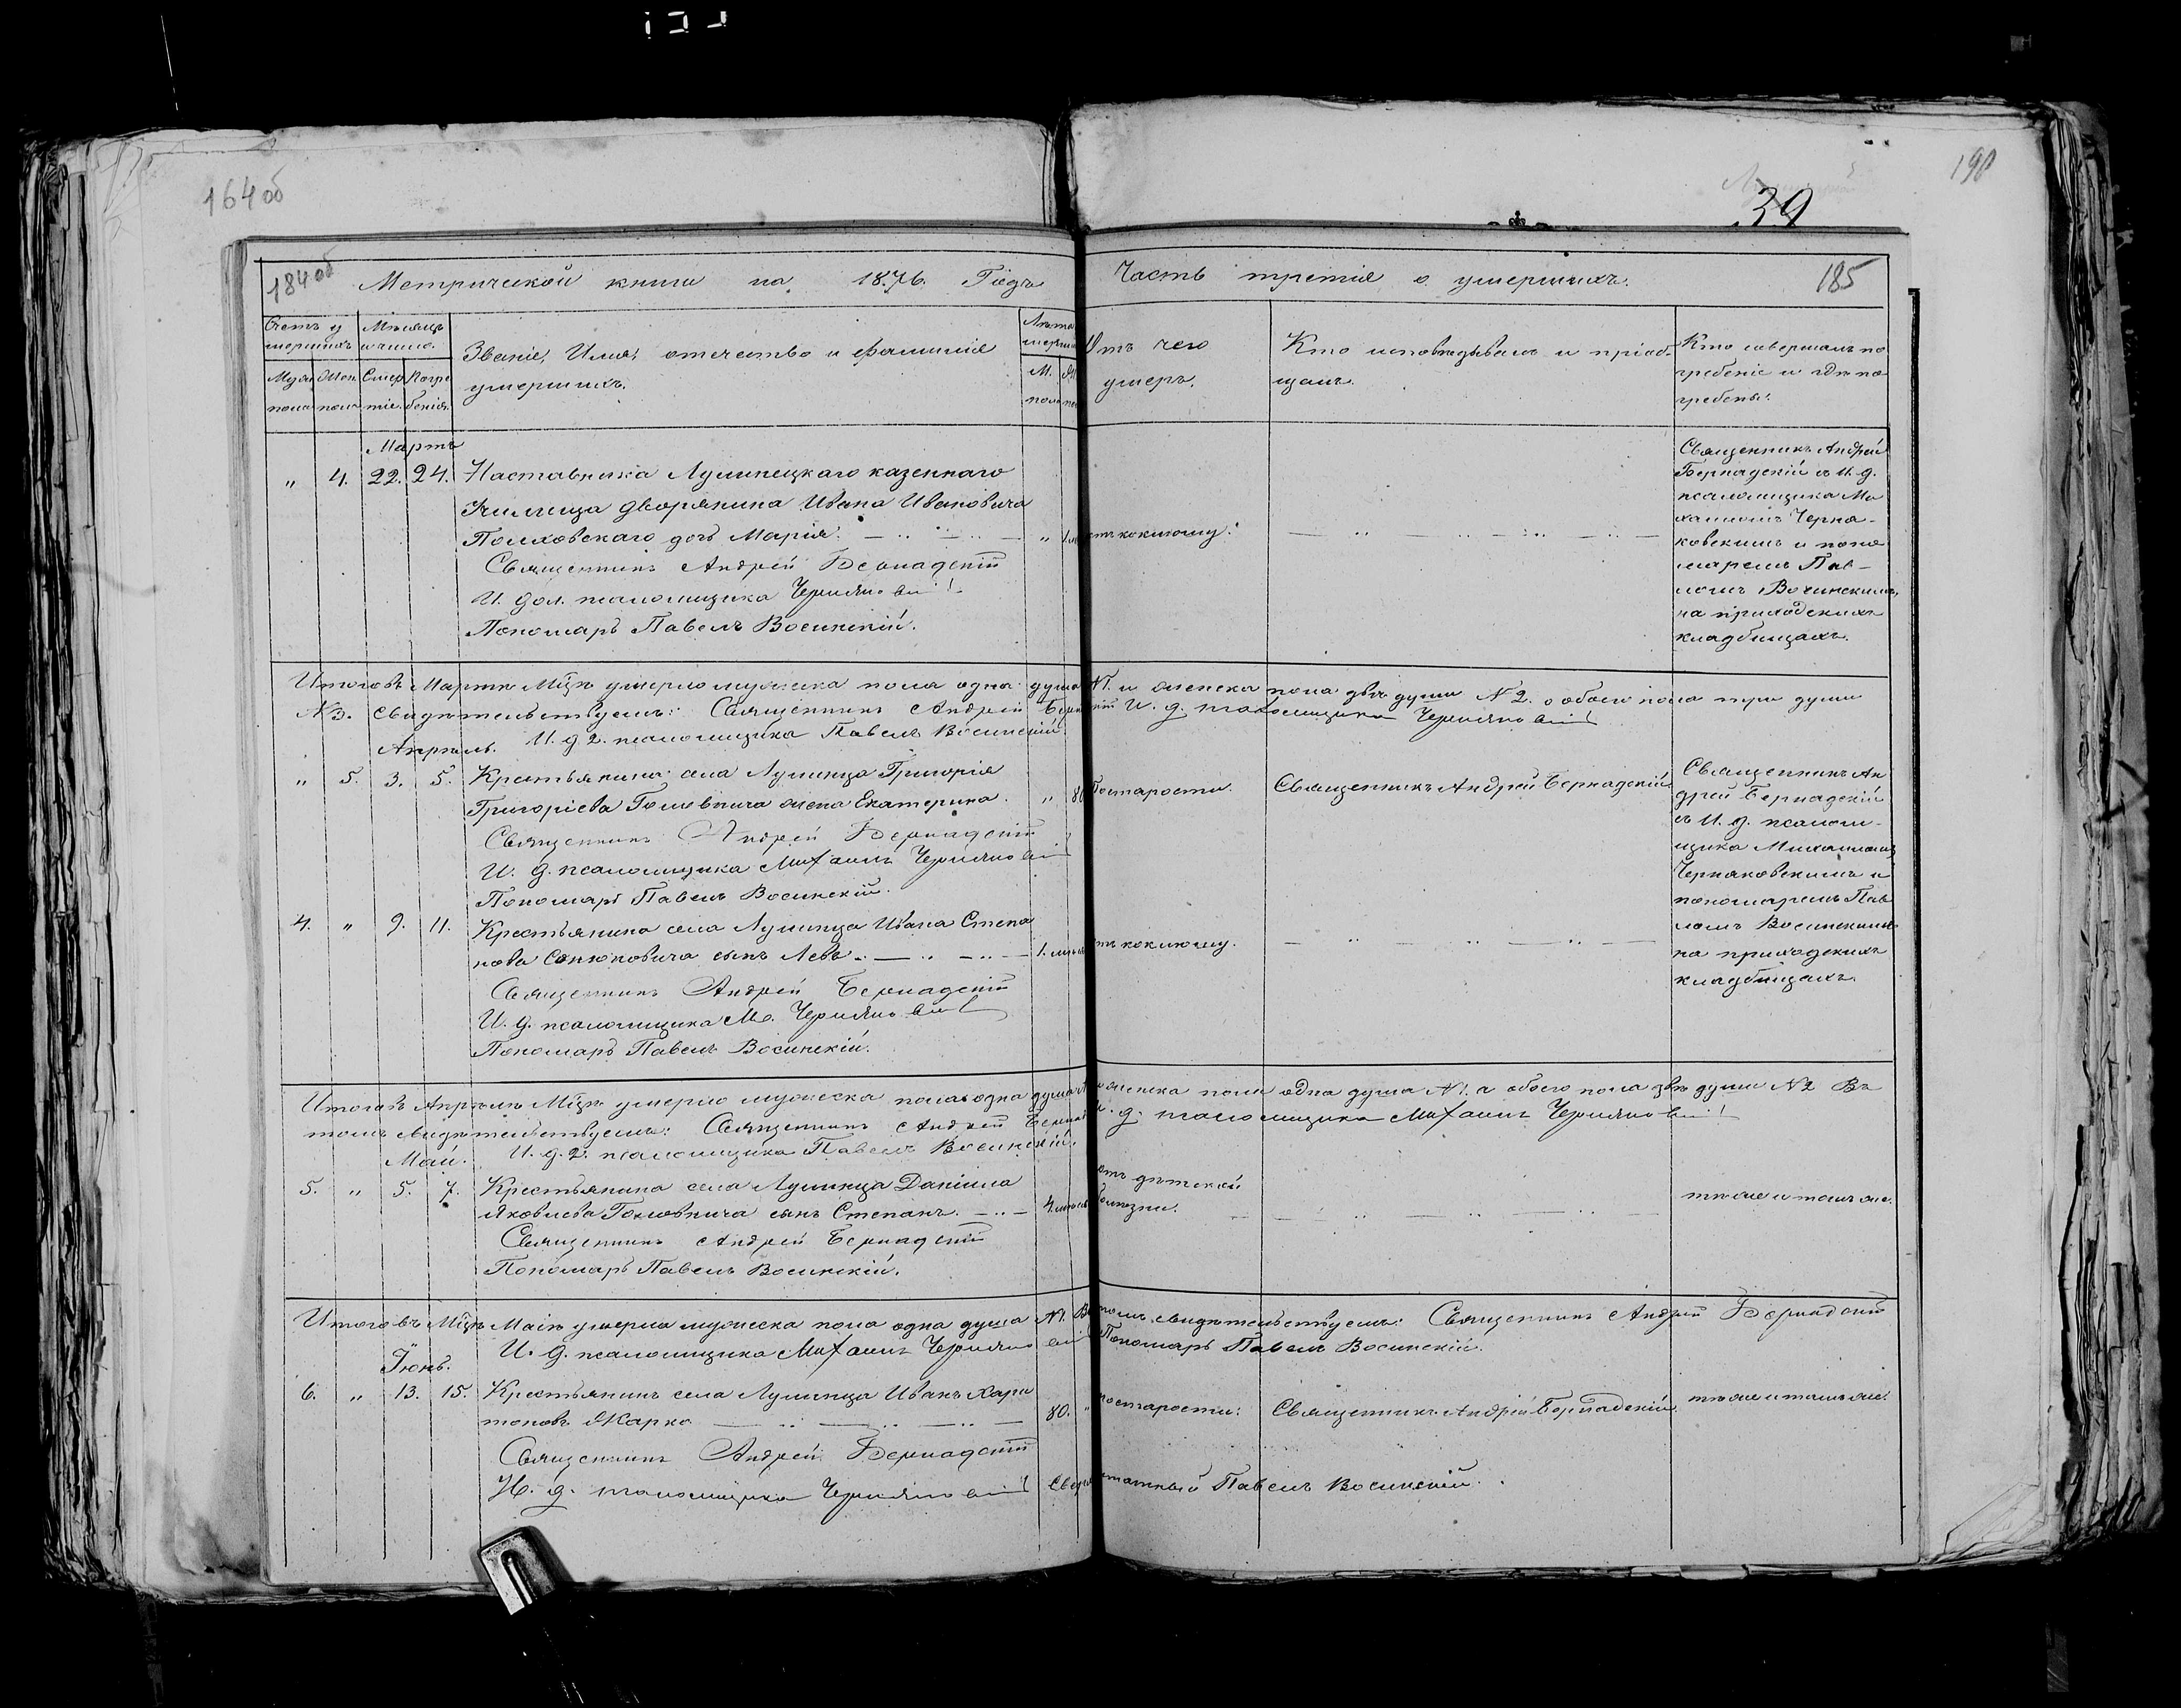 164об
190
39
184об
Метрической книги на 1876 Годъ
Часть третія о умершихъ.
185
Счетъ у
мершихъ
Мѣсяцъ
и число.
Званіе, Имя, отечество и фамилія
умершихъ.
Лѣта
умерш
Муж
пола
Жен
пола
Смер
тіе.
Погре
бенія.
М.
пола
Отъ чего
умеръ.
Кто исповѣдывалъ и пріоб-
щалъ.
Кто совершалъ по
гребеніе и гдѣ по
гребены.
Мартъ
" 4. 22. 24. Наставника Лунинецкаго казеннаго
Училища дворянина Ивана Ивановича
дочь Марія. " отъ коклюшу.
Священникъ Андрей Бернадскій
И. дол. псаломщика Черняковскій
Пономарь Павелъ Восинскій.
Священникъ Андрей
Бернадскій съ И. д.
псаломщика Ми
хаиломъ Черня-
ковскимъ и поно
маремъ Пав-
ломъ
на приходскихъ
кладбищахъ.
Итого въ Мартѣ Мцѣ умерло мужеска пола одна душа №1. и женска пола двѣ души №2. о обоего пола три души
№3. Свидѣтельствуемъ: Священникъ Андрей И. д. псаломщика Черняковскій
И. д. 2. псаломщика Павелъ Восинскій.
Апрѣль.
" 5. 3. 5. Крестьянина села Лунинца Григорія
Григоріева жена Екатерина. " 80 По старости. Священникъ Андрей Бернадскій
Священникъ Андрей Бернадскій
И. д. псаломщика Михаилъ Черняковскій
Пономарь Павелъ Восинскій.
Священникъ Ан
дрей Бернадскій
съ И. д. псалом-
щика Михаиломъ
Черняковскимъ и
пономаремъ Пав
ломъ Восинскимъ
на приходскихъ
кладбищахъ.
4. " 9. 11. Крестьянина села Лунинца Ивана Степа
нова сынъ Левъ. 1. отъ коклюшу.
Священникъ Андрей Бернадскій
И. д. псаломщика М. Черняковскій
Пономарь Павелъ Восинскій.
Итого въ Апрѣлѣ Мцѣ умерло мужеска пола одна душа и женска пола одна душа №1. а обоего пола двѣ души №2 Въ
томъ свидѣтельствуемъ: Священникъ Андрей И. д. псаломщика Михаилъ Черняковскій
И. д. 2. псаломщика Павелъ Восинскій.
Май.
5. " 5. 7. Крестьянина села Лунинца Даніила
Яковлева сынъ Степанъ. 4. отъ дѣтской
болѣзни.
тѣ же и тамъ же.
Священникъ Андрей Бернадскій
Пономарь Павелъ Восинскій.
Итого въ Мцѣ Маіѣ умерла мужеска пола одна душа №1. Въ томъ свидѣтельствуемъ: Священникъ Андрей Бернадскій
И. д. псаломщика Михаилъ Черняковскій Пономарь Павелъ Восинскій.
Іюнь.
6. " 13. 15. Крестьянинъ села Лунинца Иванъ Хари
тоновъ Жарко 80. " По старости. Священникъ Андрей Бернадскій. тѣ же и тамъ же.
Священникъ Андрей Бернадскій
И. д. псаломщика Черняковскій Сверхштатный Павелъ Восинскій.